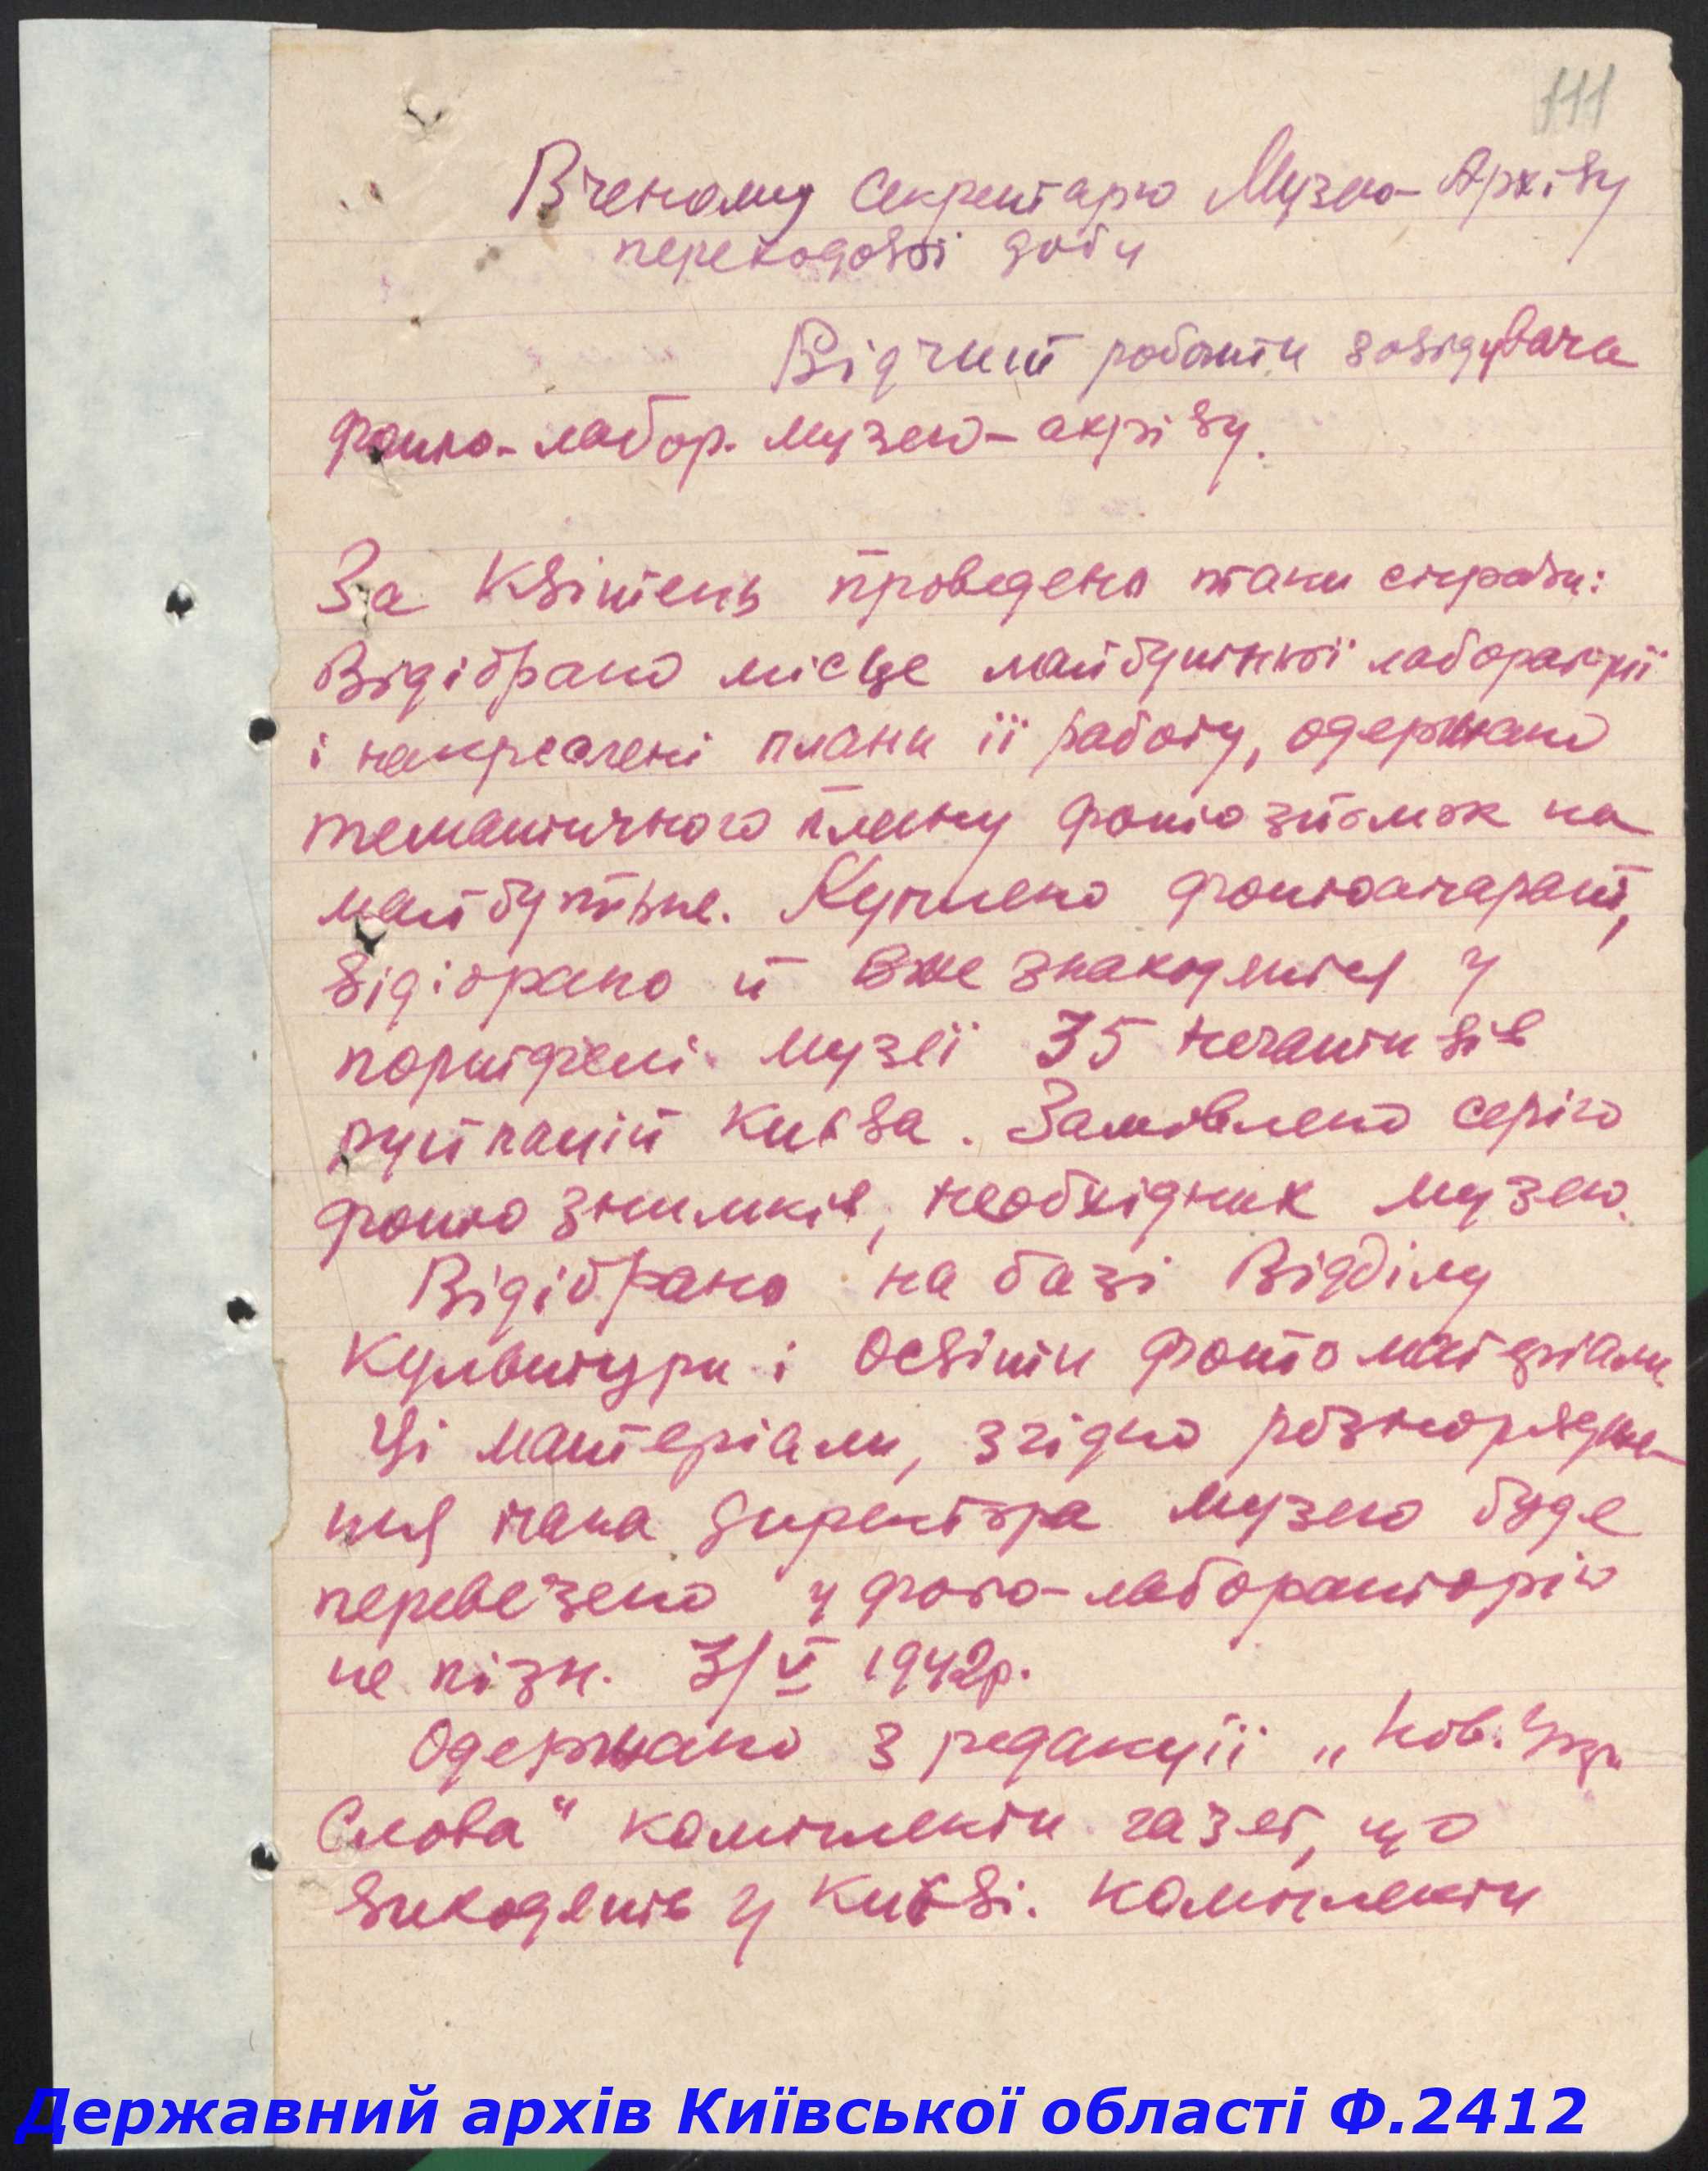 111
Вченому секретарю Музею-Архіву
переходової доби
Відчит роботи завідувача
фото-лабор. музею-ахріву.
За квітень проведено таки справи:
Відібрано місце майбутньої лабораторії
і накреслені плани її работу, одержано
тематичного плану фото зйомок на
майбутнє. Куплено фотоапарат,
відібрано й вже знаходится у
портфелі музеї 35 негативів
руйнацій Києва. Замовлено серію
фото знимків, необхідних музею.
Відібрано на базі Відділу
Культури і Освіти фото матеріали.
Ці матеріали, згідно розпорядже-
ння пана директора музею буде
перевезено у фото-лабораторію
не пізн. 3/V 1942р.
Одержано з редакції „Нов. Укр.
Слова" комплекти газет, що
виходять у Києві. Комплекти
Державний архів Київської області Ф.2412